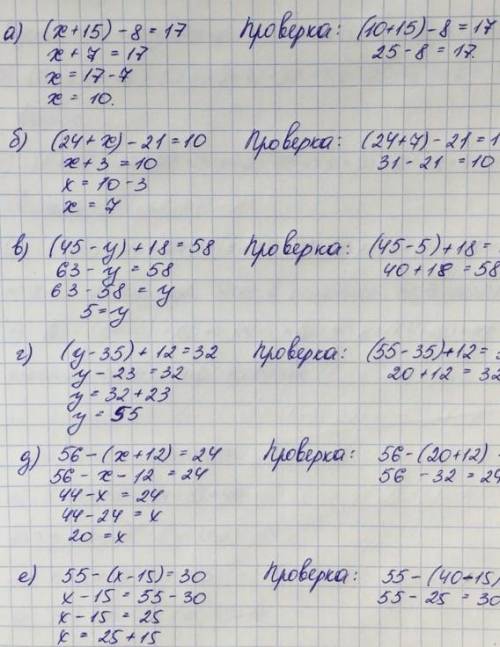 а) (x+15)-8=17 Проверка: (10+15)-8=17
x+7=17 25-8=17.
x=17-7
x=10.
б) (24+x)-21=10 Проверка: (24+7)-21=1
x+3=10 31-21=10
x=10-3
x=7
в) (45-y)+18=58 Проверка: (45-5)+18=
63-y=58 40+18=58
63-58=y
5=y
г) (y-35)+12=32 Проверка: (55-35)+12=
y-23=32 20+12=32
y=32+23
y=55
д) 56-(x+12)=24 Проверка: 56-(20+12)
56-x-12=24 56-32=24
44-x=24
44-24=x
20=x
е) 55-(x-15)=30 Проверка: 55-(40-15)
x-15=55-30 55-25=30
x-15=25
x=25+15